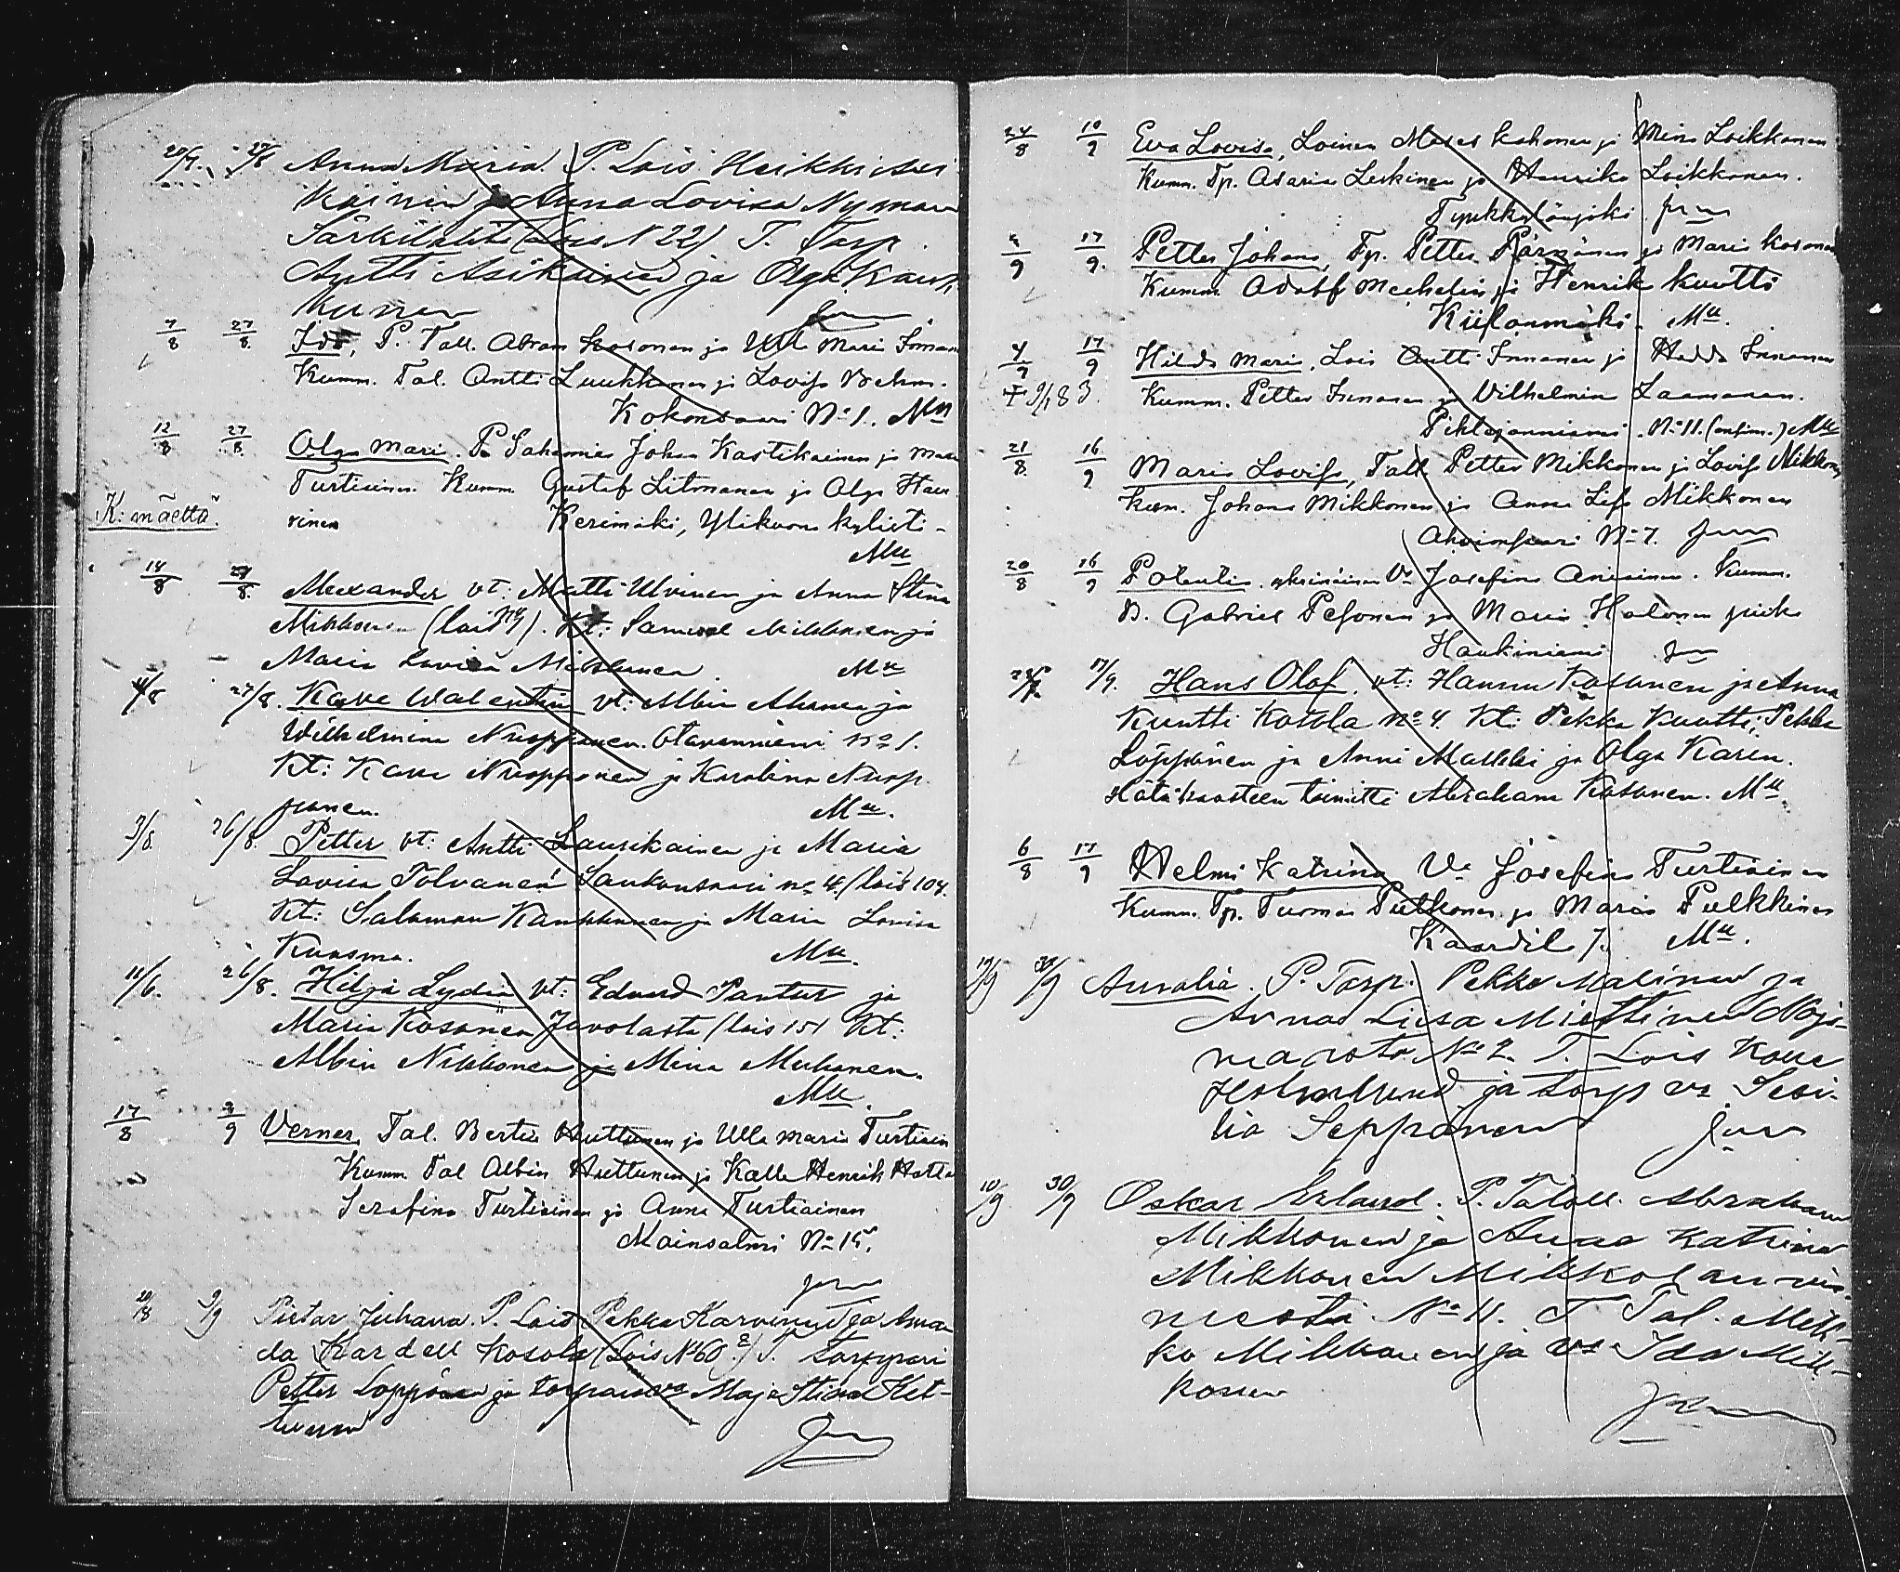 27/8 Anna Maria. P. Lois Heikki
Käinen ja Anna Lovisa Nyman
Särkilahti (Lois N 22) T. Torp.
Antti Asikainen ja Olga Kaus
kanen
7/8 27/8 Ida, P. Tall. Abram Kosonen ja Ulla Maria Innanen
Kumm. Tal. Antti Luukkonen ja Lovisa
Kokonsaari No 1. Mu
12/8 27/8 Olga Maria. P. Johan Kostikainen ja Maria
Turtiainen. Kumm. Gustaf Litmanen ja Olga Hau
K:mäeltä
rinen Kerimäki, Ylikuona kylästi
Mu
14/8 27/8 Alexander vt: Matti Ulvinen ja Anna Stina
Mikkonen (lois). Kt: Samuel Mikkonen ja
Maria Lovisa Mikkonen. Mu
27/8. Kaye Walentin vt: Albin Muhonen ja
Wilhelmina Nuopponen. Otavanniemi no 1.
Kt: Kalle Nuopponen ja Karolina Nuop
ponen. Mu.
3/8 26/8 Petter vt: Antti Laurikainen ja Maria
Lovisa Tolvanen Saukonsaari no 4. (lois 104.
Kt: Salomon Kaukkonen ja Maria Lovisa
Kuosma. Mu.
11/6. 26/8. Hilja Lydia vt: Edvard Pantur ja
Maria Kosonen Juvolasta (lois 151 Kt:
Albin Nikkonen ja Mina Muhonen.
Mu.
17/8 9/9 Verner, Tal. Bertil Huttunen ja Ulla Maria Turtiain
Kumm. Tal Albin Huttunen ja Kalle Henrik Hottu
Serafina Turtiainen ja Anna Turtiainen
Moinsalmi No 15.
20/8 9/9 Pietar Juhana. P. Lois Pekka Karvinen ja Aman
da Kardell Kosola (Lois No 60.) T. Torppari
Petter Loppönen ja torparinva Maja Stina Het-
tunen
24/8 10/9 Eva Lovisa, Loinen Moses Kohonen ja Mina Loikkanen
Kumm. Tp. Asarias Leskinen ja Henrika Loikkanen.
9 17/9 Petter Johan, Tp. Petter Pärnänen ja Maria Kosonen
Kumm. Adolf Mechelin ja Henrik Kuutti
Kiilanmäki. Mu.
4/9 17/9 Hilda Maria, Lois Antti Innanen ja Hedda Innanen
Kumm. Petter Innanen ja Vilhelmina Laamanen.
Pihlajanniemi. No 11. Mu
21/8 16/9 Maria Lovisa, Tall Petter Mikkonen ja Lovisa Nikkonen
Kum. Johan Mikkonen ja Anna Lisa Mikkonen
Ahvionsaari No 7.
20/8 16/9 Potentia. yksinäisen Va Josefina Anisimen. Kumm.
B. Gabriel Pesonen ja Maria Halonen piika
Haukiniemi
17/9. Hans Olof. vt: Hannu Kosonen ja Anna
Kuutti Kosola no 4 Kt: Pekka Kuutti, Pekka
Löppönen ja Anni Malkki ja Olga Karen.
Hätäkasteen toimitti Abraham Kosonen. Mu.
6/8 17/9 Helmi Katrina Va Josefina Turtiainen
Kumm. Tp. Tuomas Pulkkonen ja Maria Pulkkinen
Kaardil 7. Mu.
19/9 30/9 Auralia. P. Torp. Pekka Malinen ja
Anna Liisa Miettinen Noji-
maasta No 2. T. Lois Kalle
Holmlund ja torp va Sesi-
lia Seppänen
10/9 30/9 Oskar Erland. P. Taloll. Abraham
Mikkonen ja Anna Katrina
Mikkonen Mikkolan nie-
mestä No 11. T Tal. Mik-
ko Mikkonen ja va Ida Mik-
konen